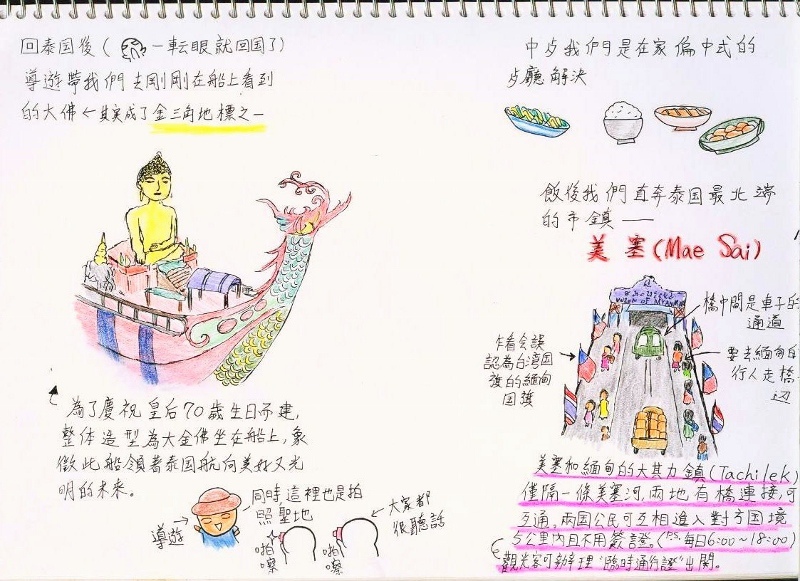 回泰国後(一転眼就回国了)
導遊帶我們去剛剛在船上看到
的大佛←其實成了金三角地標之一
為了慶祝皇后70歲生日而建,
整体造型為大金佛坐在船上,象
徵此船領著泰国航向美好又光
明的未來。
導遊
同時這裡也是拍
照聖地
大家都
很聽話
啪
嚓
啪
嚓
中歺我們是在家偏中式的
歺廳解決
飯後我們直奔泰国最北端
的市鎮——
美塞(Mae Sai)
UNION OF MYANMAR
橋中間是車子的
通道
乍看会誤
認為台湾国
旗的緬甸
国旗
要去緬甸的
行人走橋
辺
美塞和緬甸的大其力鎮(Tachilek)
僅隔一條美塞河,兩地有橋連接,可
互通,兩国公民可互相進入對方国境
5公里內且不用簽證。(P.S.每日6:00~18:00)
觀光客可辦理"臨時通行證"出関。